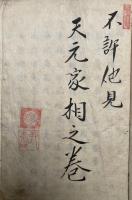 不許他見
天元家相之卷